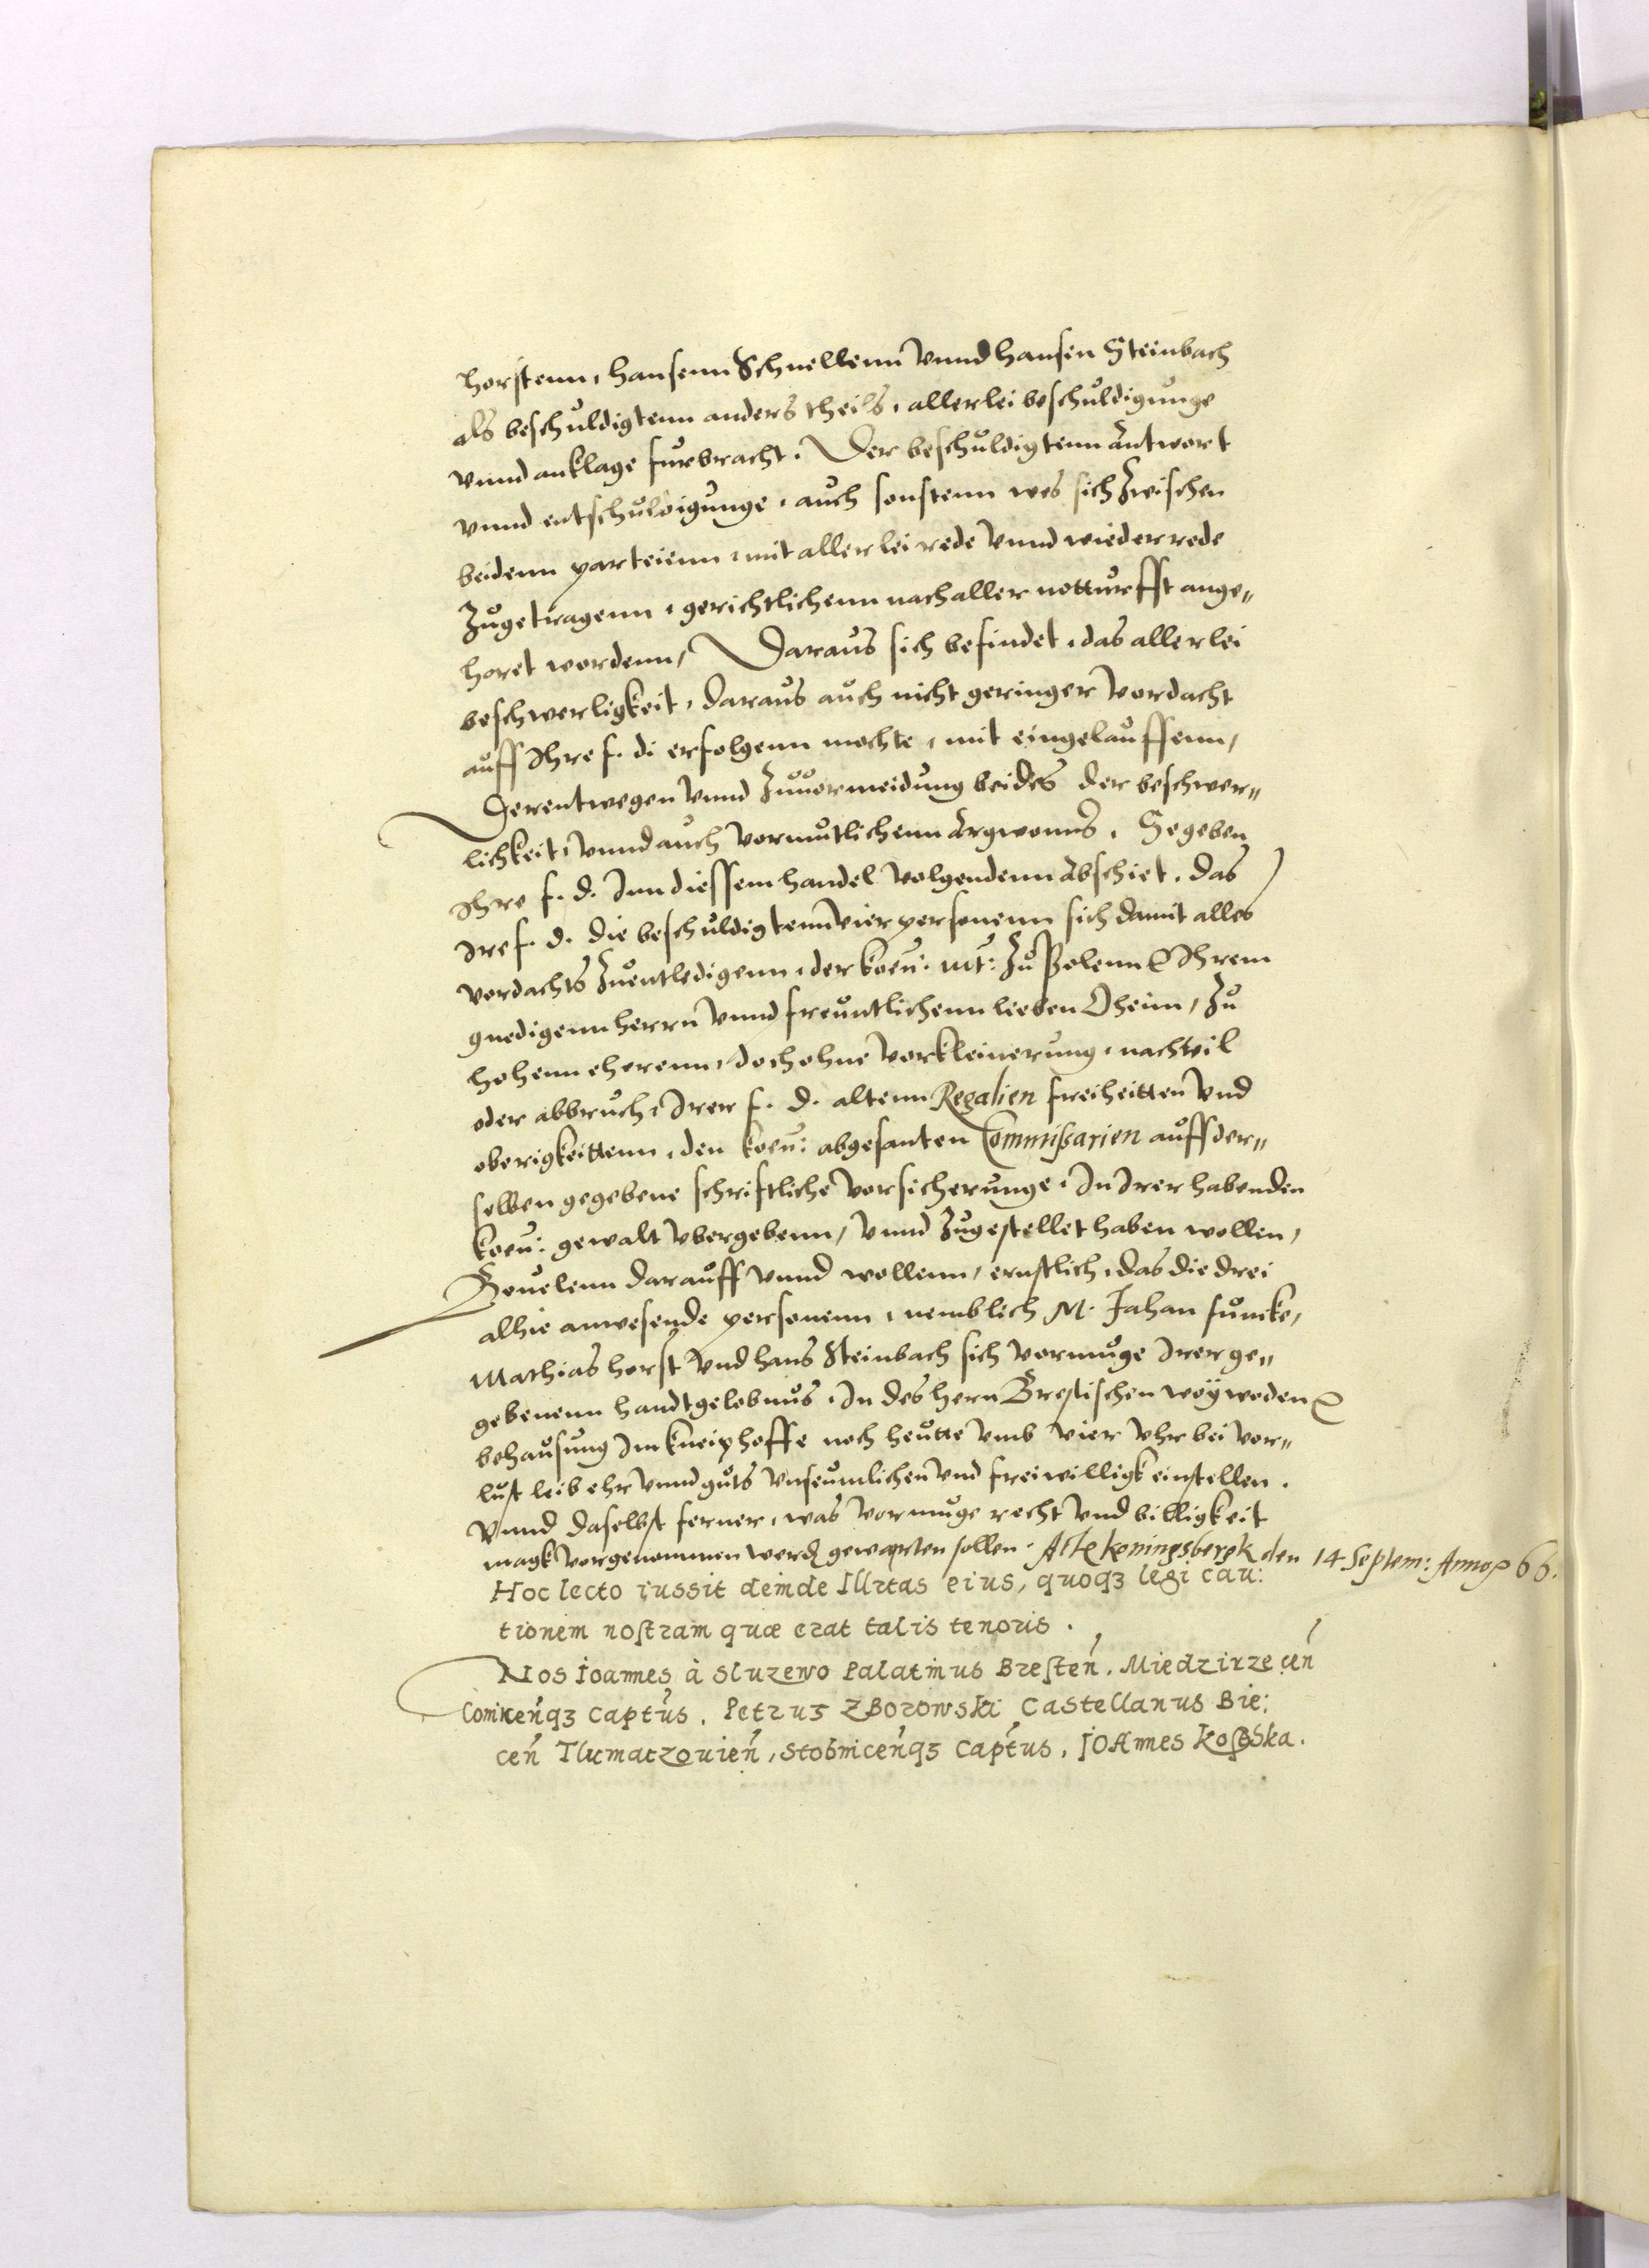 horstenn, hansenn Schnellenn vnnd hansen Steinbach
als beschuldigtenn anders theils, allerlei beschuldigunge
vnnd anklage furbracht. Der beschuldigtenn Antwort
vnnd entschuldigunge, auch sonstenn wes sich zwischen
beidenn parteienn, mit allerlei rede vnnd wiederrede
zugetragenn, gerichtlichenn nach aller notturfft ange„
horet wordenn, Daraus sich befindet, das allerlei
beschwerligkeit, daraus auch nicht geringer vordacht
auff Ihre f. d. erfolgenn mochte, mit eingelauffenn,
Derentwegen vnnd zuuormeidung beides der beschwer„
lichkeit, vnnd auch vormutlichenn Argwonns, Gegeben
Ihre f. d. Inn diessem handel volgendenn Abschiet, das
Ire f. d. die beschuldigtenn vier personenn sich damit alles
vordachts zuentledigenn, der koen: mt: zu Polenn Ihrem
gnedigenn herrn vnnd freuntlichenn lieben Oheim, zu
hohenn eherenn, doch ohne vorkleinerung, nachteil
oder abbruch, Irer f. d. altenn Regalien freiheitten vnd
oberigkeittenn, den koen: abgesanten Commissarien auff der„
selben gegebene schriftliche vorsicherunge, In Irer habenden
koen: gewalt vbergebenn, vnnd zugestellet haben wollen,
Beuelenn darauff vnnd wollenn, ernstlich, das die drei
alhie anwesende personenn, nemblich M. Johan funcke,
Mathias horst vnd hans Steinbach sich vormuge Irer ge„
gebenenn handtgelobnus, In des hern Brestischen woyweden
behausung Im kneiphoffe noch heutte vmb vier vhr bei vor„
lust leib ehr vnnd guts vnseumlichen vnd freiwilligk einstellen.
Vnnd daselbst ferner, was vormuge recht vnd billigkeit
magk vorgenommen werden gewarten sollen. Alte koningsbergk den 14 Septem: Anno 66.
Hoc lecto iussit deinde Illrtas eius, quoqз legi cau:
tionem nostram quæ erat talis tenoris.
Nos ioannes à Sluzewo Palatinus Bresten, Miedzirzecen
Coninenqз Captus. Petrus ZBorowski Castellanus Bie:
cen Tlumaczouien, Stobnicenqз Captus, iOAnnes Kostka.